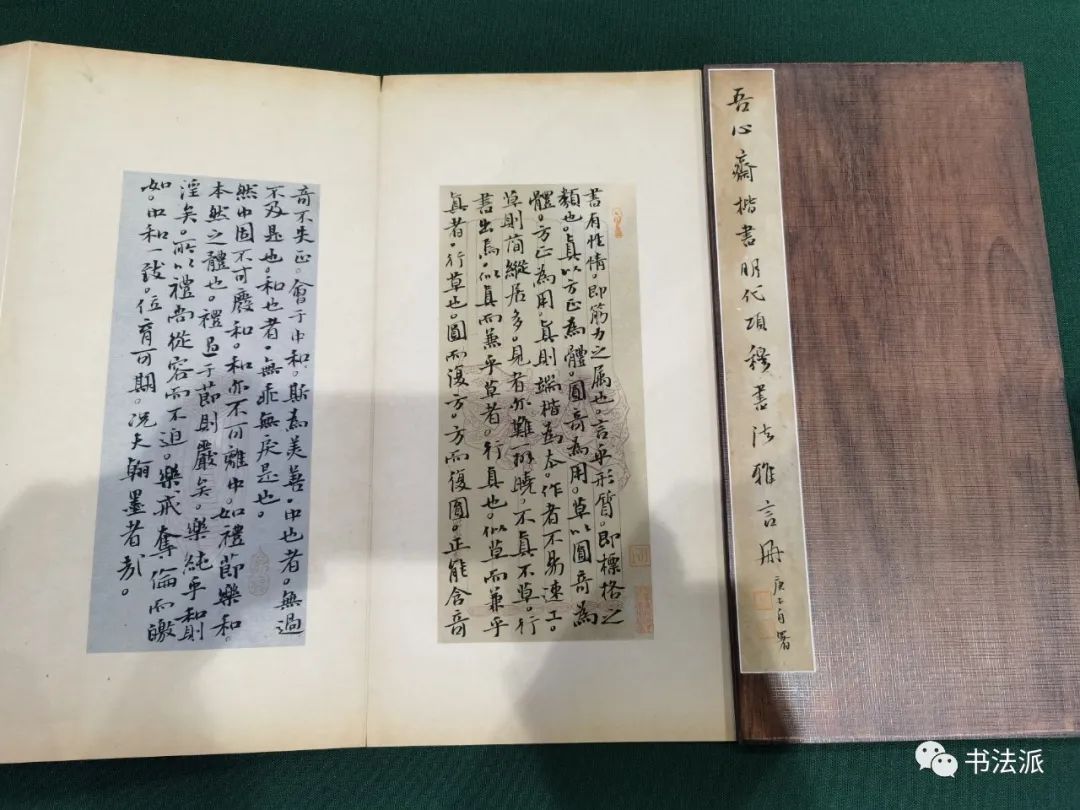 吾心齋楷書明代項穆書法雅言册
庚子自署
書有性情。即筋力之属也。言乎形質。即標格之
類也。真以方正為體。圓奇為用。草以圓奇為
體。方正為用。真則端楷為本。作者不易速工。
草則简縱居多。見者亦難辯曉。不真不草。行
書出焉。似真而兼乎草者。行真也。似草而兼乎
真者。行草也。圓而復方。方而復圓。正能含奇
奇不失正。會于中和。斯為美善。中也者。無過
不及是也。和也者。無乖無戾是也。
然中固不可廢和。和亦不可離中。如禮節樂和。
本然之體也。禮過于節則嚴矣。樂純乎和則
淫矣。所以禮尚從容而不迫。樂戒奪倫而皦
如。中和一致。位育可期。况夫翰墨者哉。
书法派